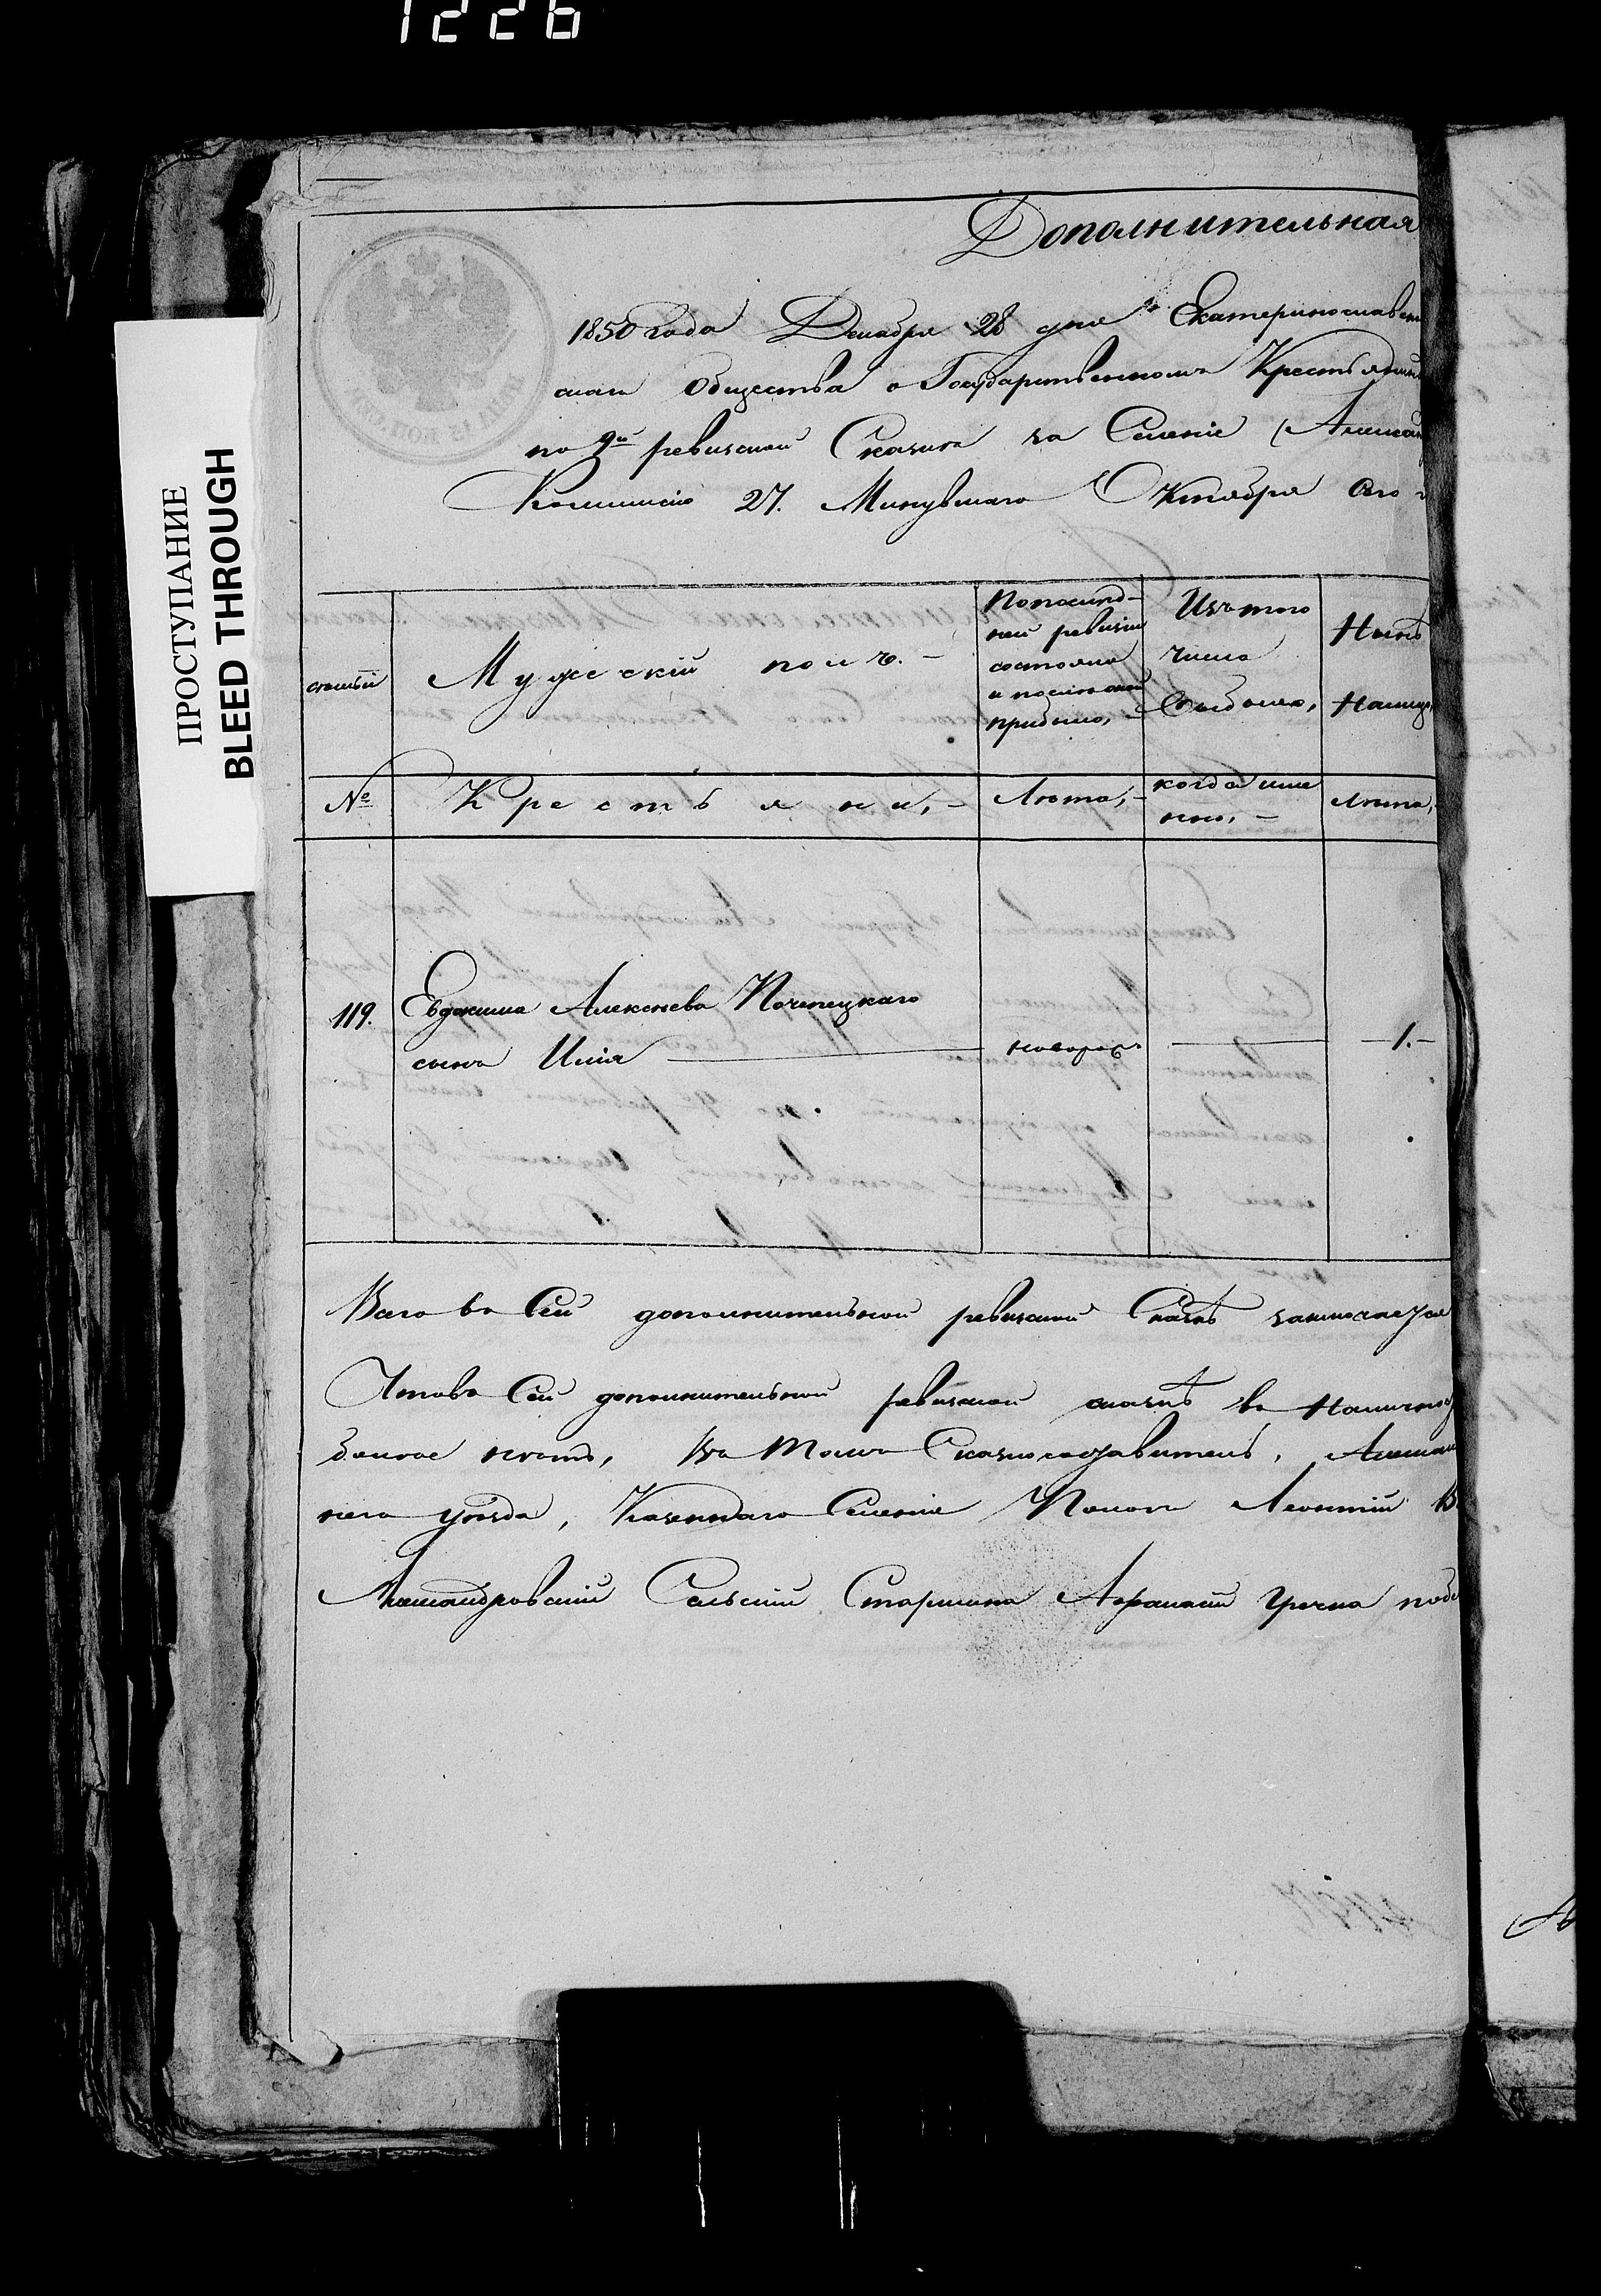 1226
ПРОСТУПАНИЕ
BLEED THROUGH
Дополнительная
1850 года Декабря 28 дня Екатеринославск
скаго Общества о Государственномъ Крестьянин
по 9й ревизской Сказки за Селеніе
Коммисію 27. Минувшаго Октября сего
статьи
Мужескій полъ. —
По послед-
ней ревизіи
состояло
и после оной
прибыло, —
Изъ того
числа
выбыло,
Нынѣ
Налицо
№
Крестьяни, —
Лета, —
когда име
нно, —
Лета,
119.
Евдокима Алексеева Почепецкаго
сынъ Илія
новорож.
1. —
Всего въ Сей дополнительной ревизской Сказкѣ заключается
Что въ Сей дополнительной ревизской сказкѣ
нетъ, Въ томъ Сказкоподавитель,
уезда, Казеннаго Селенія Пологъ Леонтій
Александровскій Сельскій Старшина Афанасій Гречка